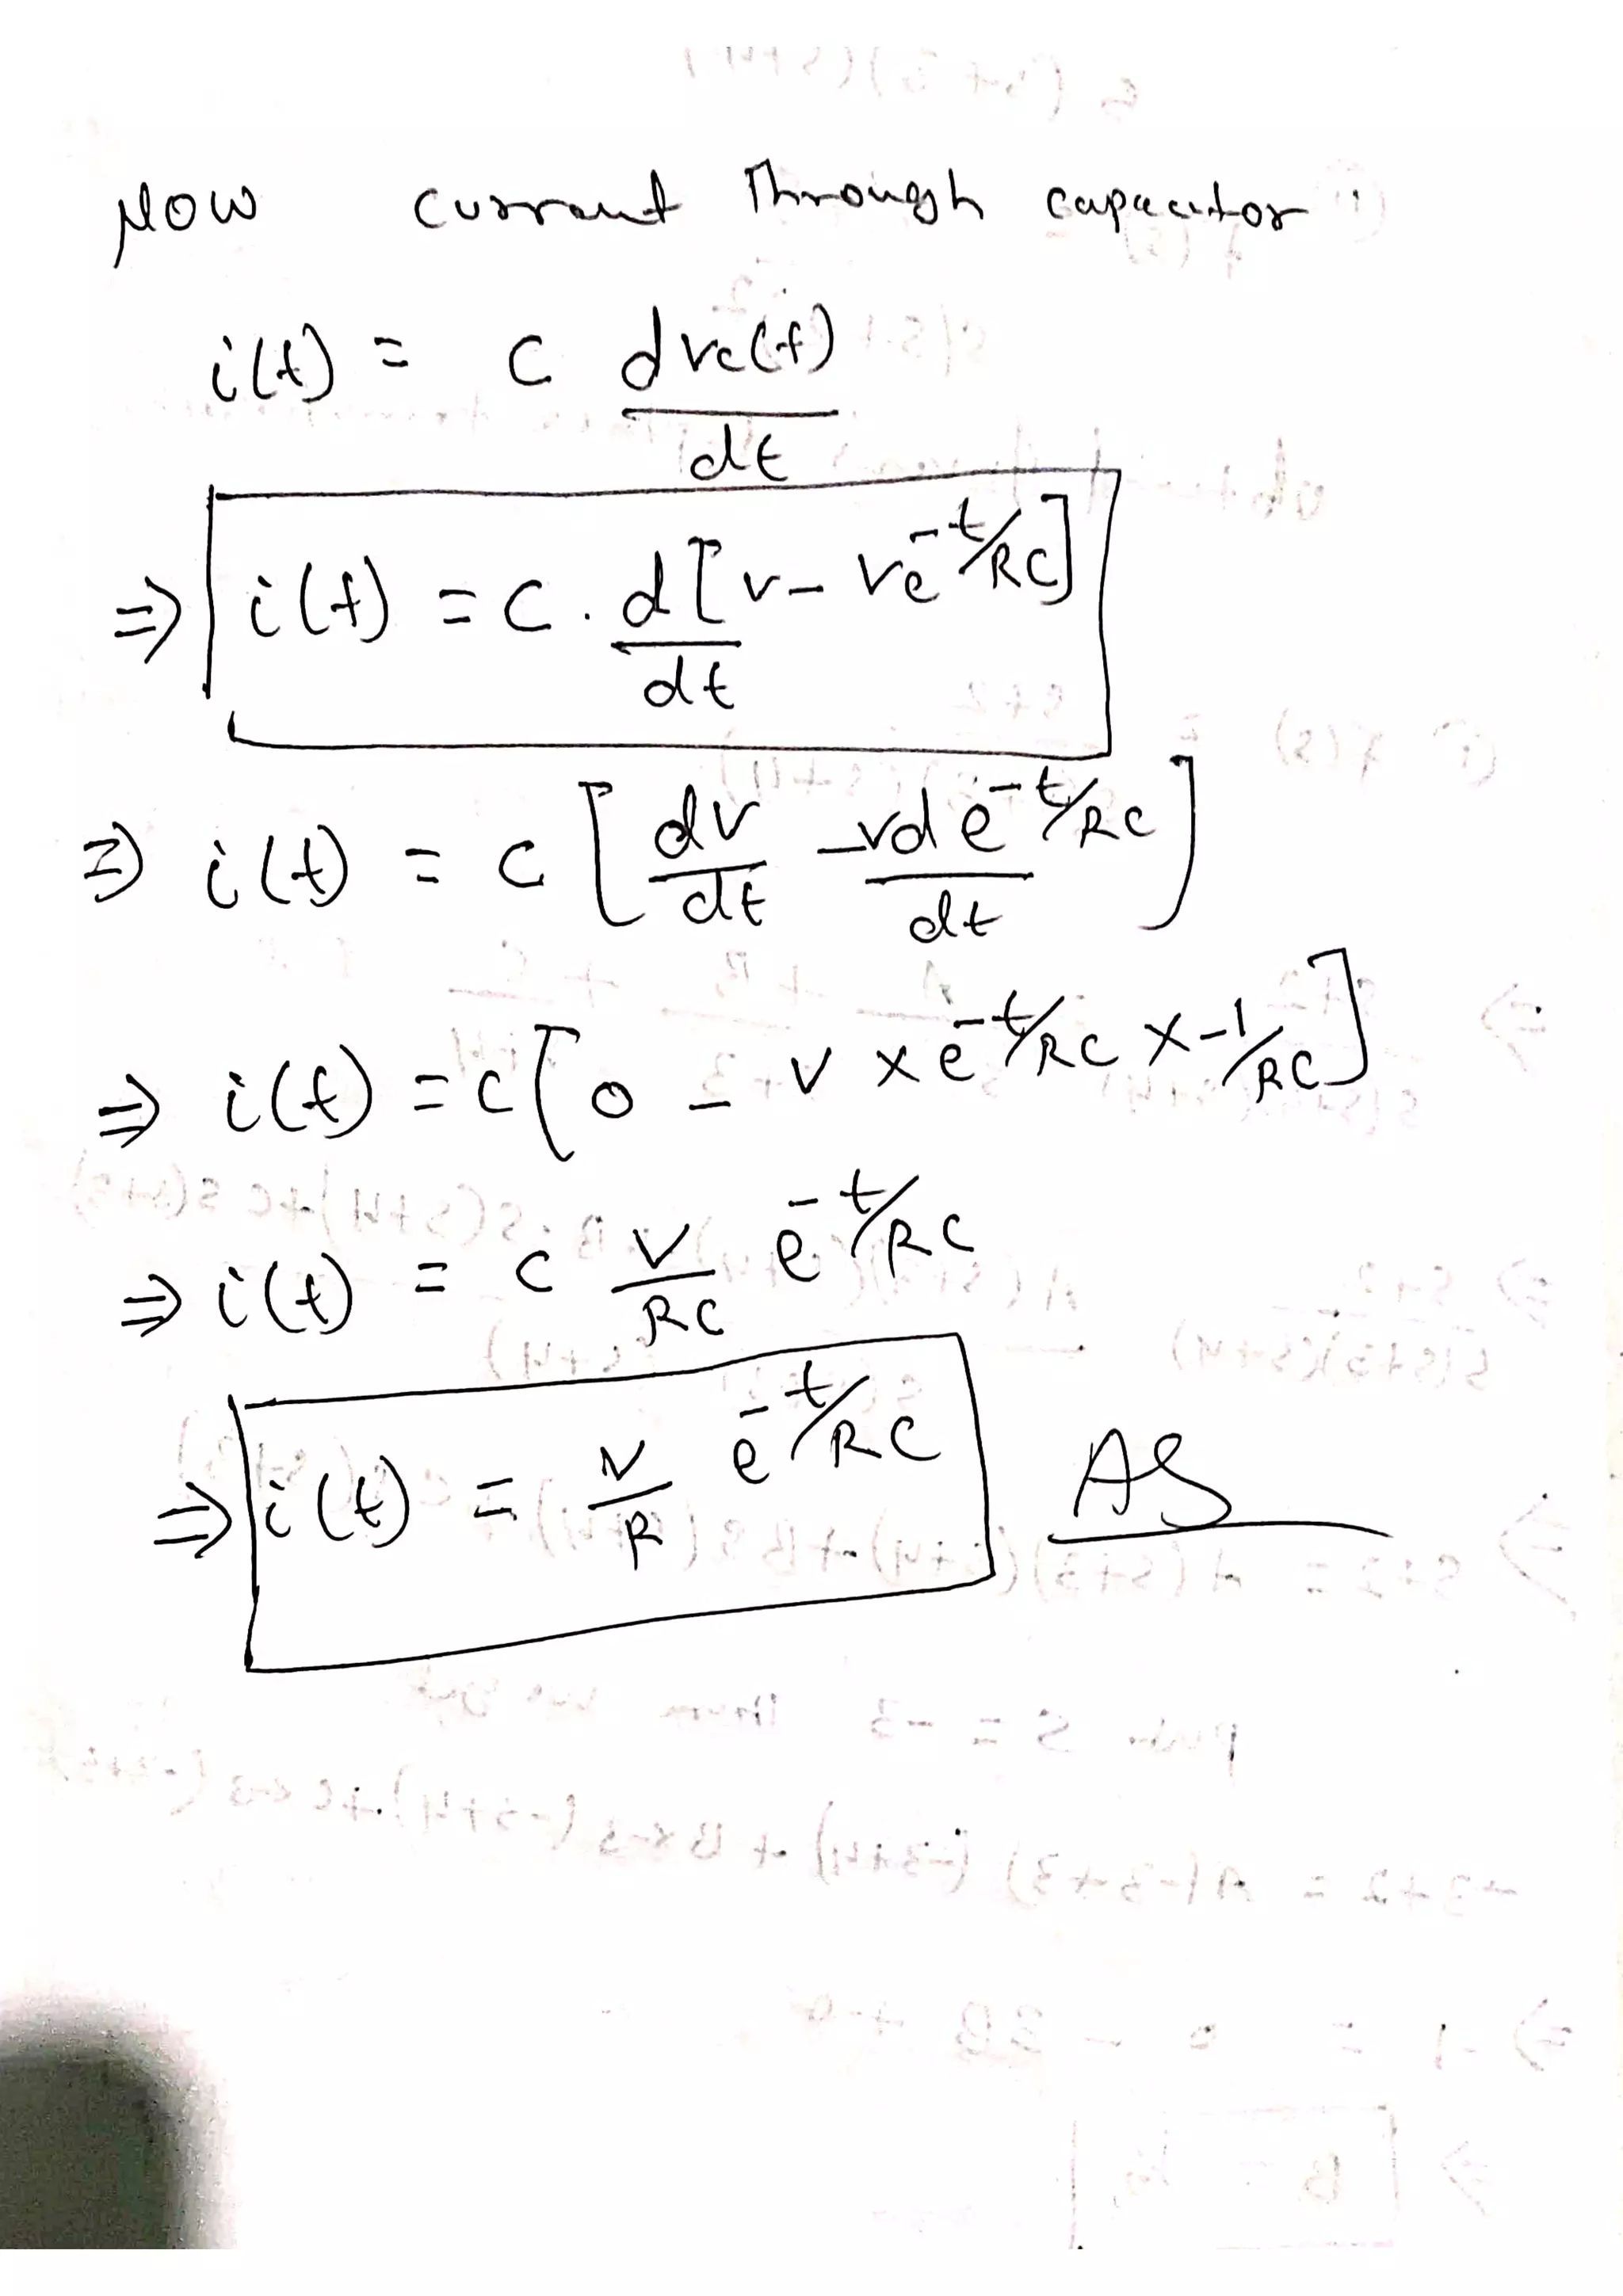 Now current Through capacitor
i(t) = C dvc(t)/dt
⇒ i(t) = C . d/dt [v - ve^-t/RC]
⇒ i(t) = C [dv/dt - vd e^-t/RC / dt]
⇒ i(t) = C [0 - v × e^-t/RC × -1/RC]
⇒ i(t) = C V/RC e^-t/RC
⇒ i(t) = V/R e^-t/RC AS